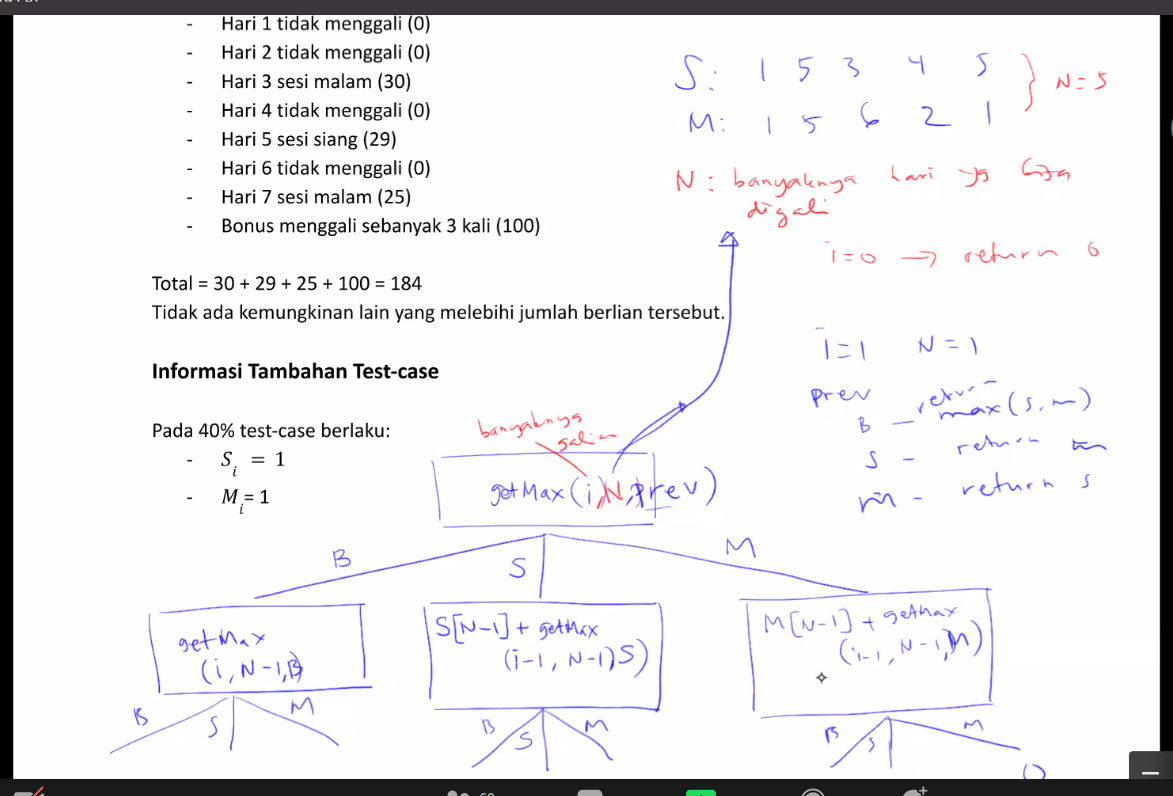 - Hari 1 tidak menggali (0)
- Hari 2 tidak menggali (0)
- Hari 3 sesi malam (30)
- Hari 4 tidak menggali (0)
- Hari 5 sesi siang (29)
- Hari 6 tidak menggali (0)
- Hari 7 sesi malam (25)
- Bonus menggali sebanyak 3 kali (100)
Total = 30 + 29 + 25 + 100 = 184
Tidak ada kemungkinan lain yang melebihi jumlah berlian tersebut.
Informasi Tambahan Test-case
Pada 40% test-case berlaku:
- S_i = 1
- M_i = 1
S: 1 5 3 4 5
M: 1 5 6 2 1
} N = 5
N : banyaknya hari yg bisa
digali
i=0 → return 0
i=1 N=1
prev
B — return max(s,m)
S - return m
m - return s
banyaknya
galian
getMax(i,N,prev)
B S M
getMax
(i, N-1, B)
S[N-1] + getMax
(i-1, N-1, S)
M[N-1] + getMax
(i-1, N-1, M)
B S M
B S M
B S M